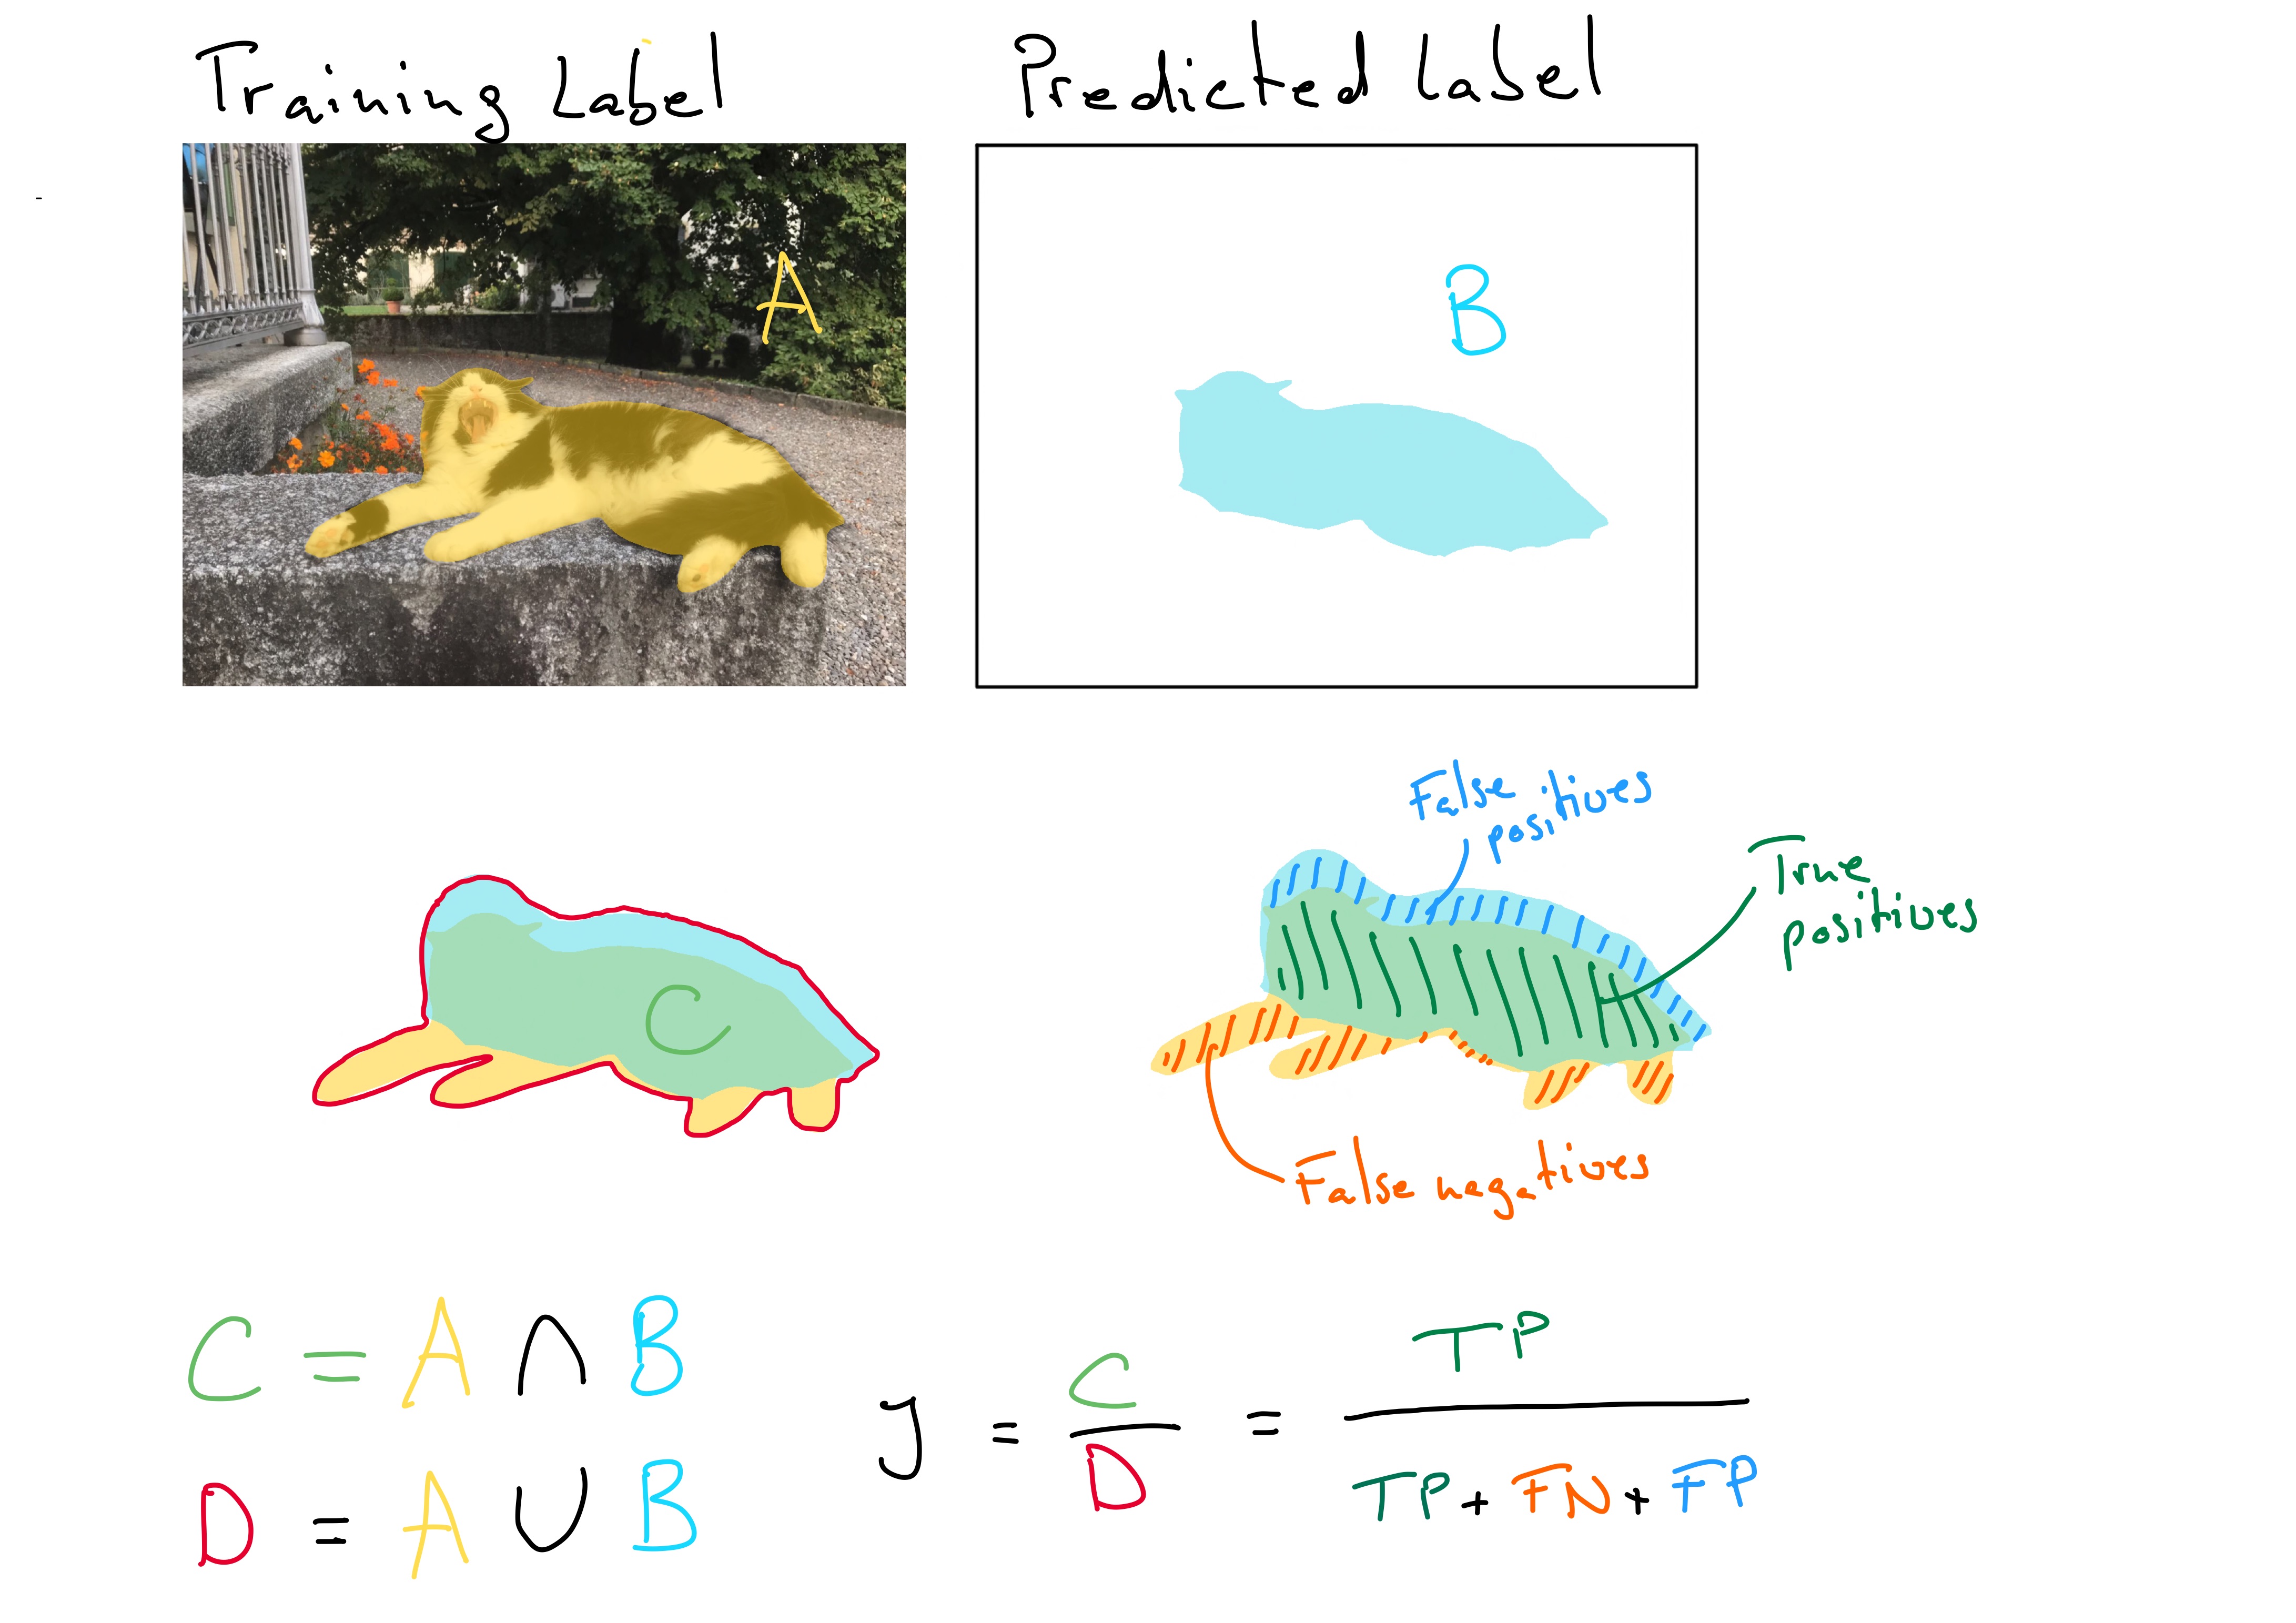 Training Label
Predicted Label
A
B
False
positives
True
positives
C
False negatives
C = A ∩ B
D = A ∪ B
J = C / D = TP / TP + FN + FP